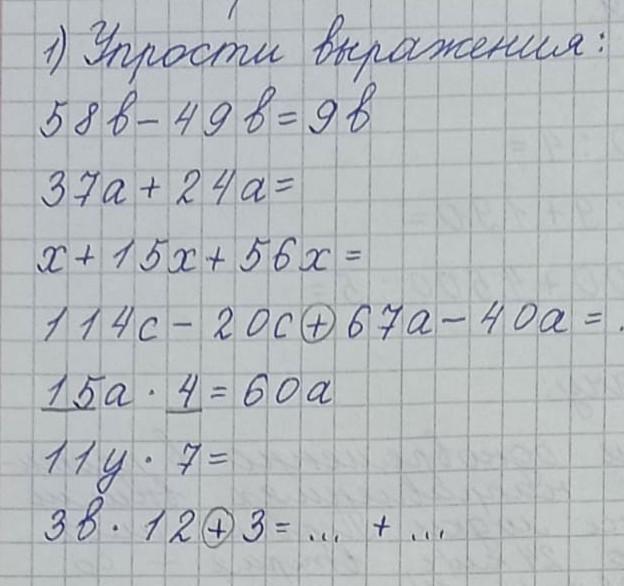 1) Упрости выражения:
58в - 49в = 9в
37а + 24а =
х + 15х + 56х =
114с - 20с + 67а - 40а = .
15а · 4 = 60а
11у · 7 =
3в · 12 + 3 = ... + ...